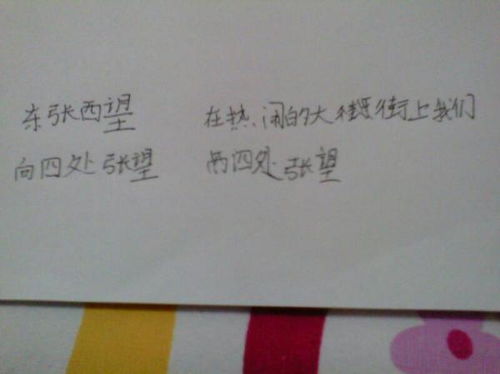 东张西望
向四处张望
在热闹的大街街上我们
四处张望